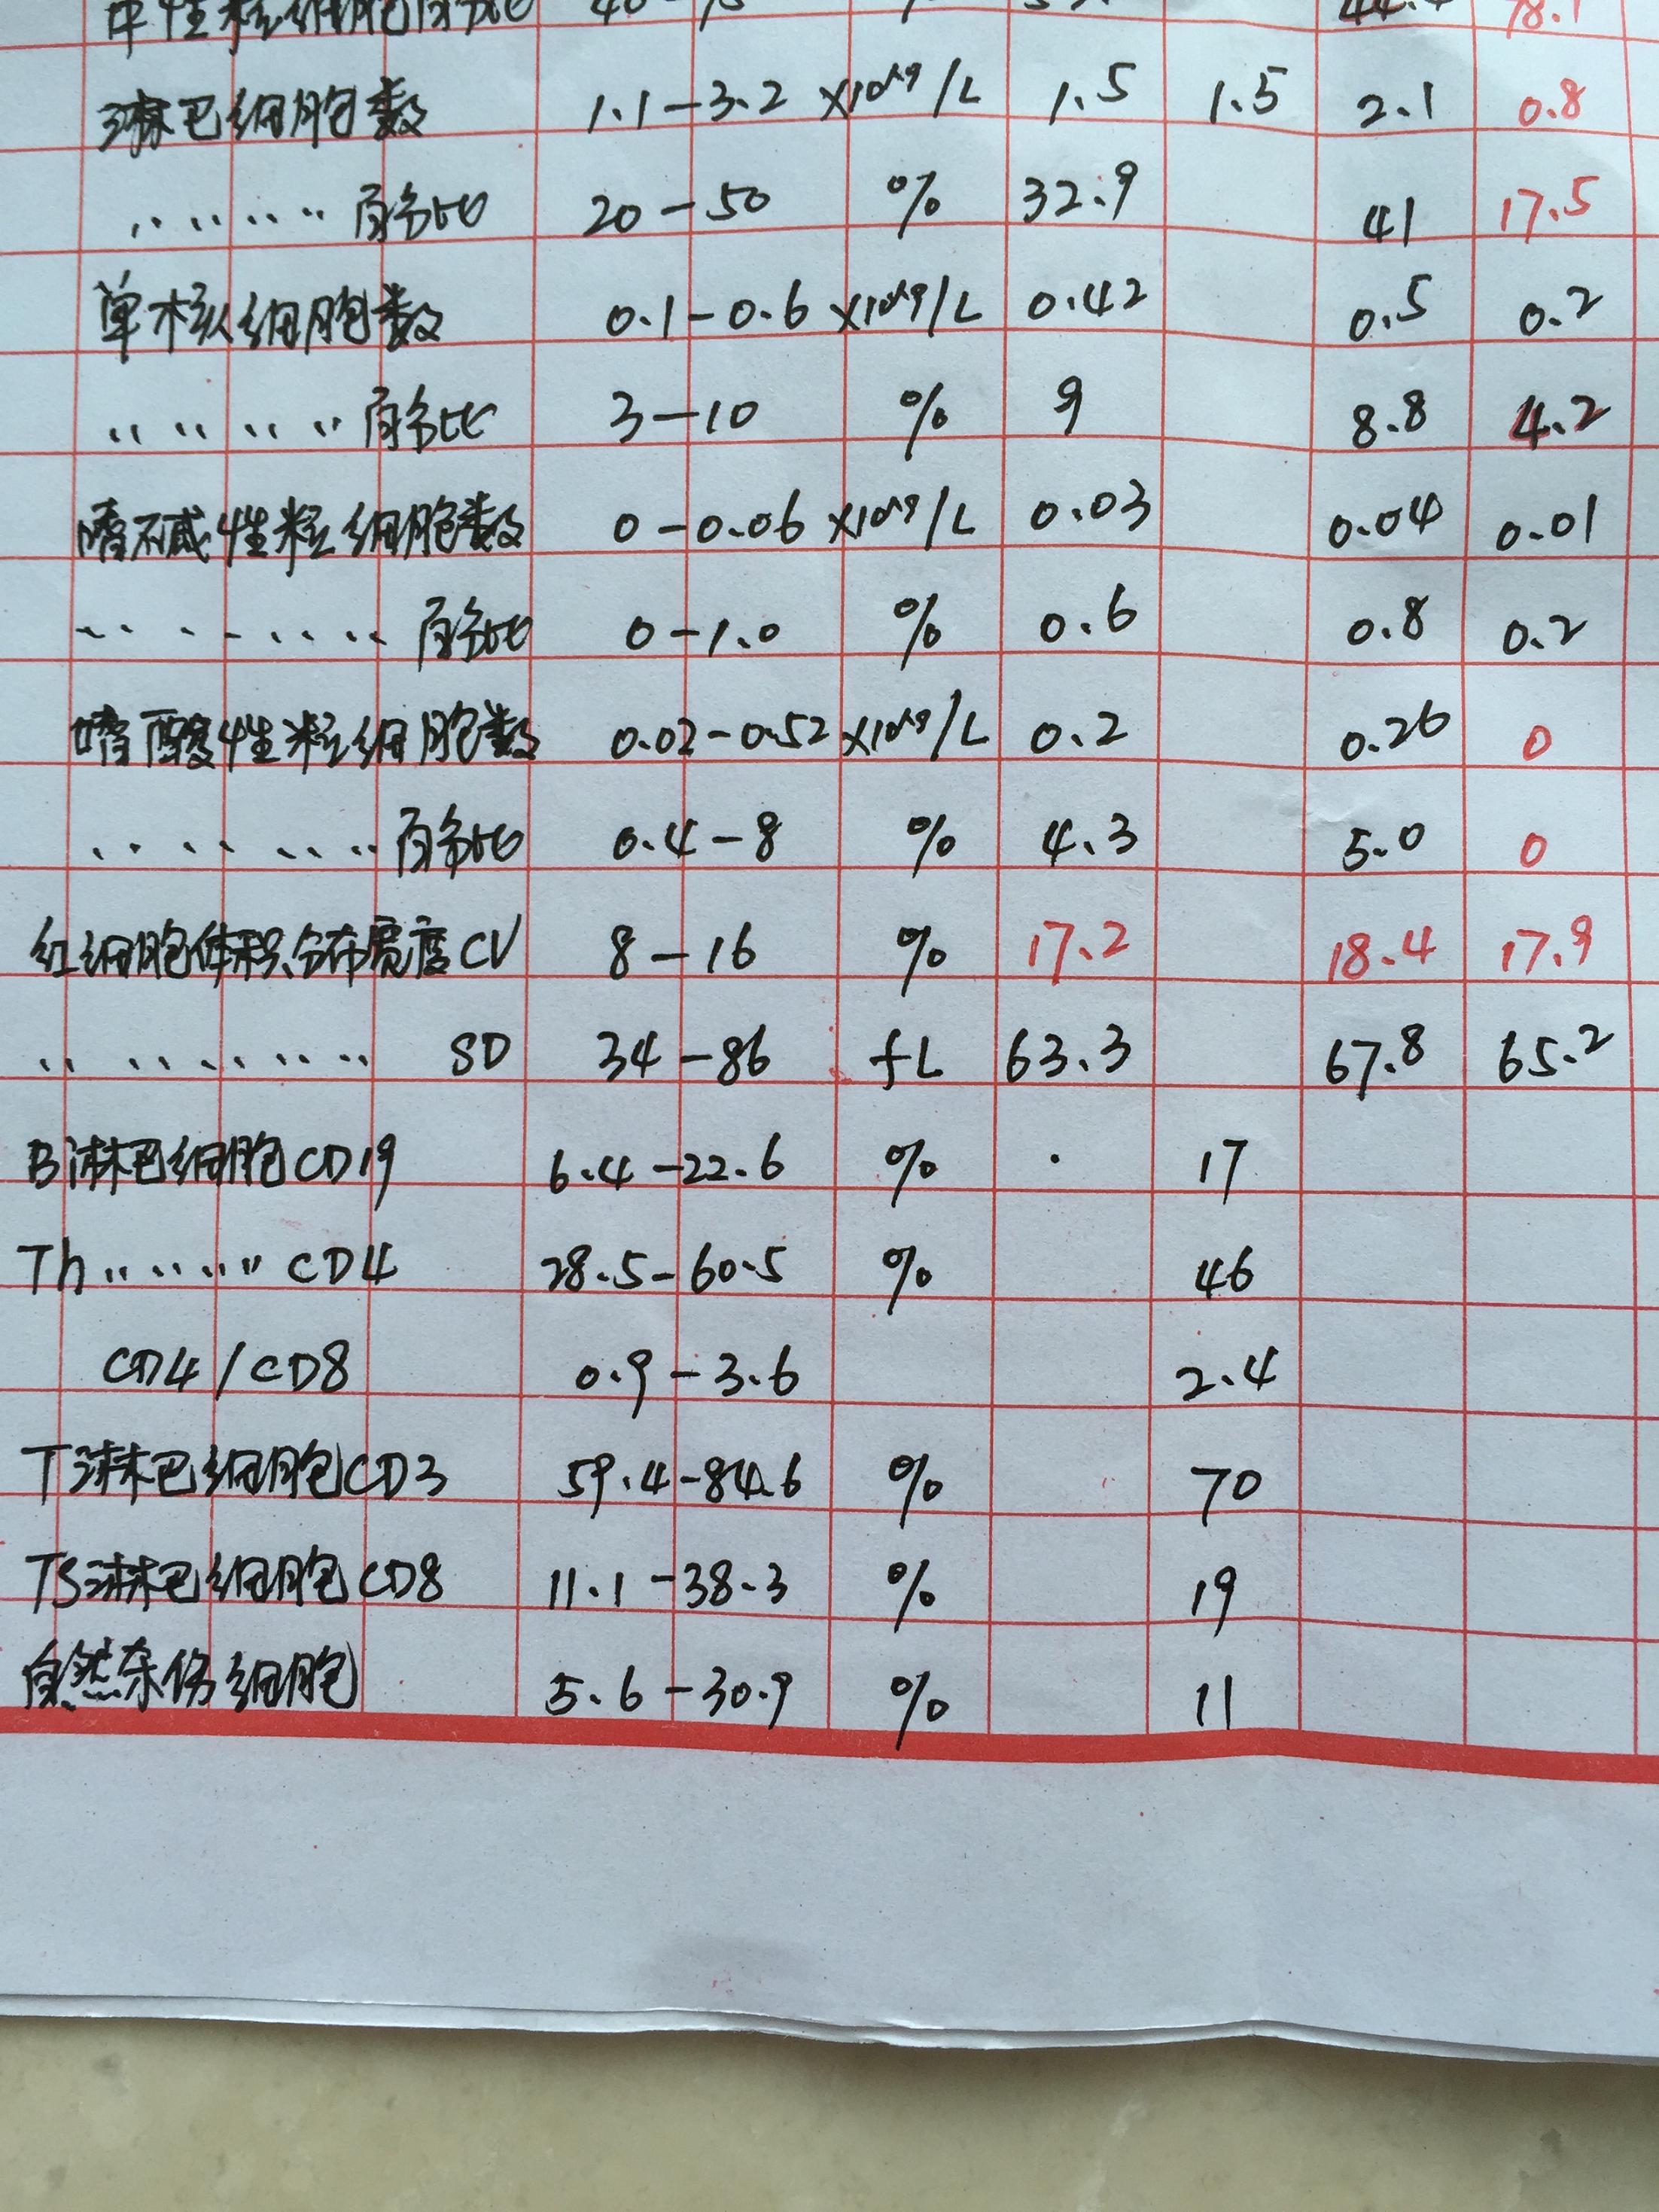 中性粒细胞百分比 40-75 % 44.4 78.1
淋巴细胞数 1.1-3.2 ×10^9/L 1.5 1.5 2.1 0.8
〃〃〃〃〃 百分比 20-50 % 32.9 41 17.5
单核细胞数 0.1-0.6 ×10^9/L 0.42 0.5 0.2
〃〃〃〃 百分比 3-10 % 9 8.8 4.2
嗜碱性粒细胞数 0-0.06 ×10^9/L 0.03 0.04 0.01
〃〃〃〃〃〃 百分比 0-1.0 % 0.6 0.8 0.2
嗜酸性粒细胞数 0.02-0.52 ×10^9/L 0.2 0.26 0
〃〃〃〃〃〃 百分比 0.4-8 % 4.3 5.0 0
红细胞体积分布宽度CV 8-16 % 17.2 18.4 17.9
〃〃〃〃〃〃〃 SD 34-86 fL 63.3 67.8 65.2
B淋巴细胞CD19 6.4-22.6 % 17
Th〃〃〃〃〃 CD4 28.5-60.5 % 46
CD4/CD8 0.9-3.6 2.4
T淋巴细胞CD3 59.4-84.6 % 70
TS淋巴细胞CD8 11.1-38.3 % 19
自然杀伤细胞 5.6-30.9 % 11